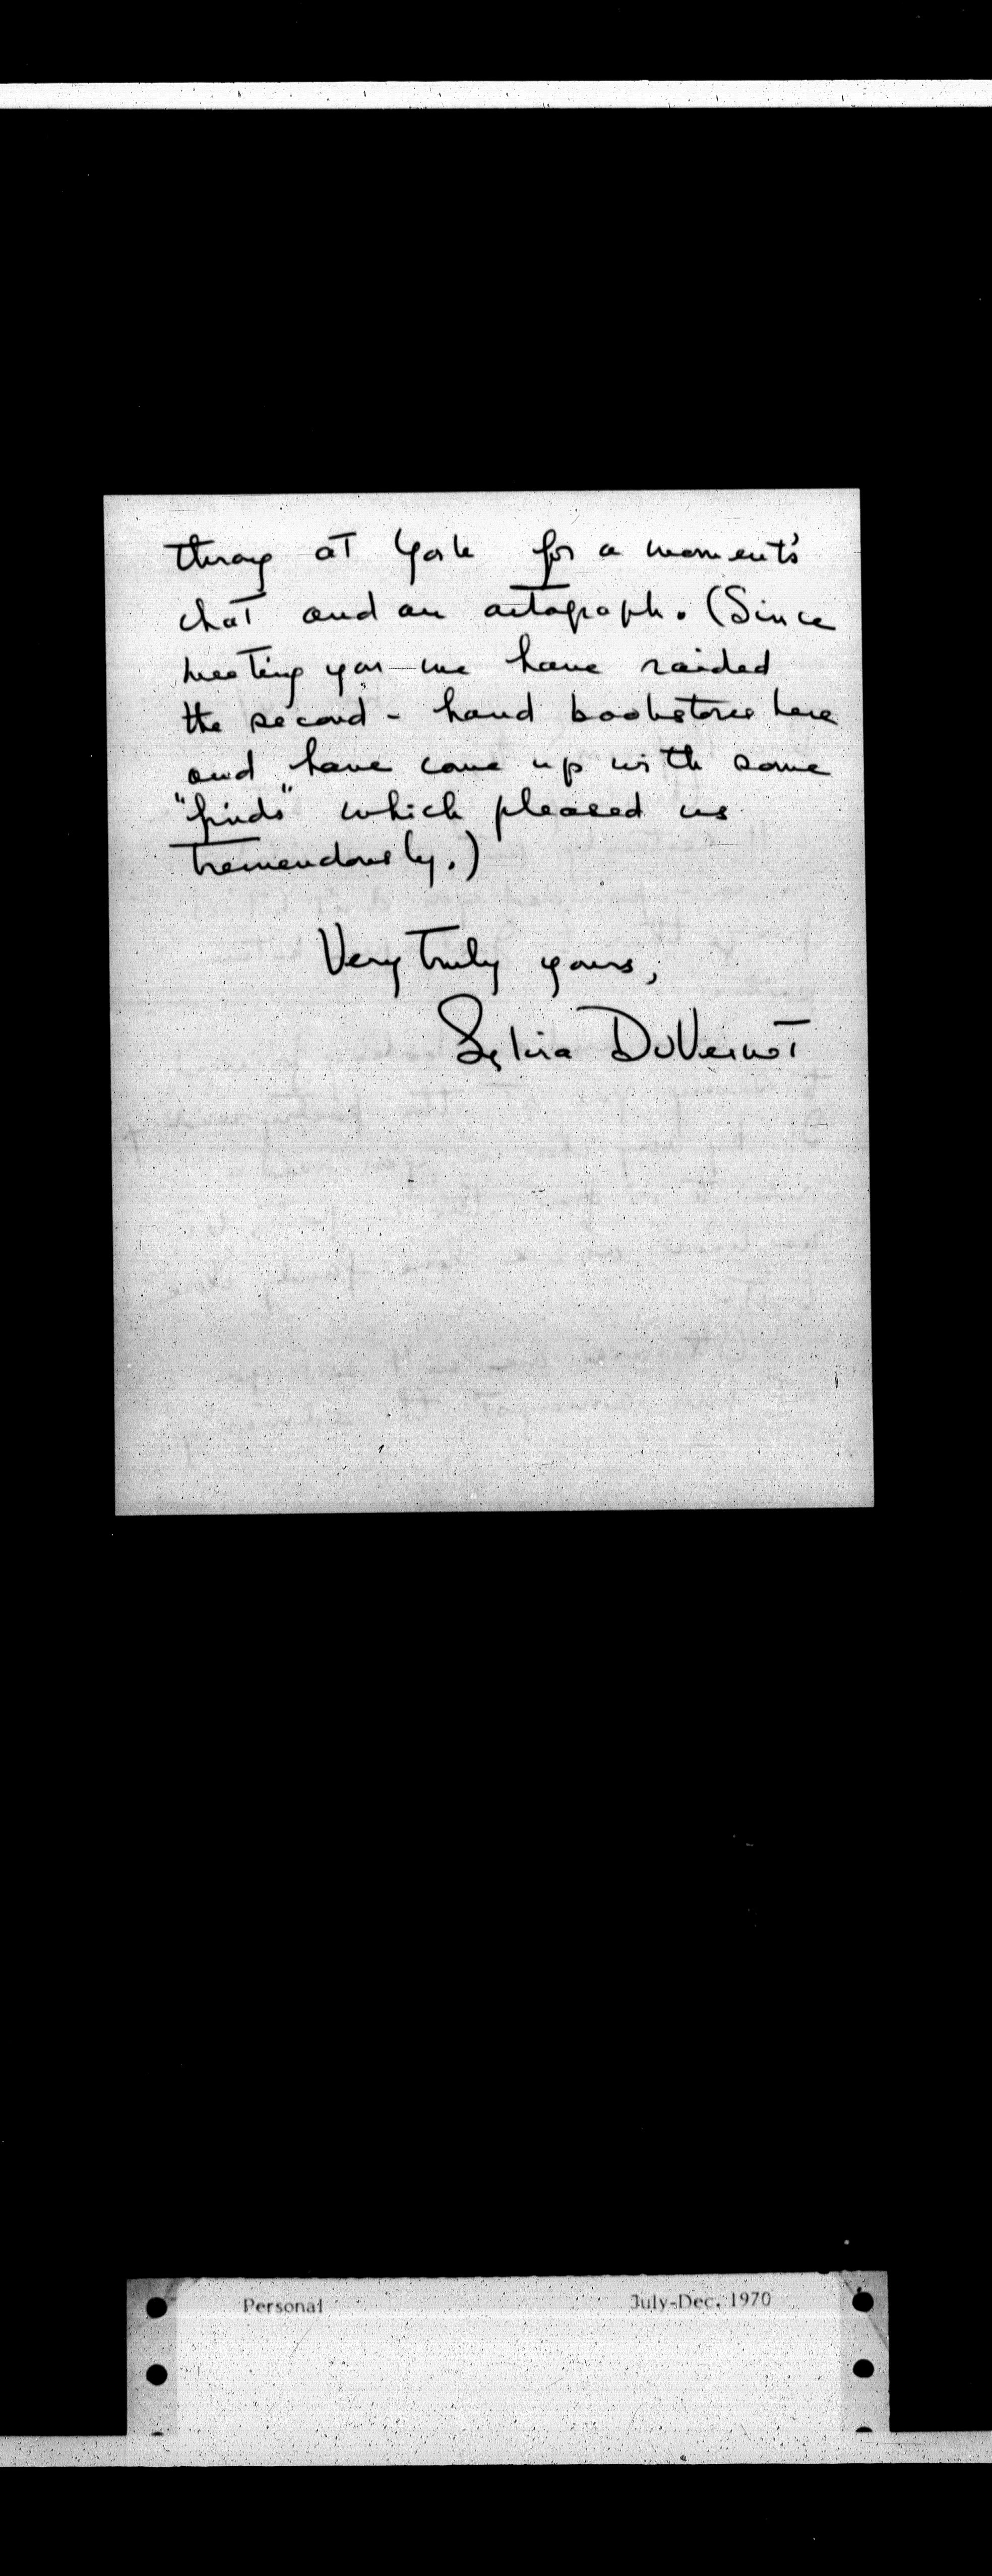 throng at York for a moment's
chat and an autograph. (Since
meeting you we have raided
the second-hand bookstores here
and have come up with some
"finds" which pleased us
tremendously.)
Very truly yours,
Sylvia DuVernet
Personal July-Dec. 1970